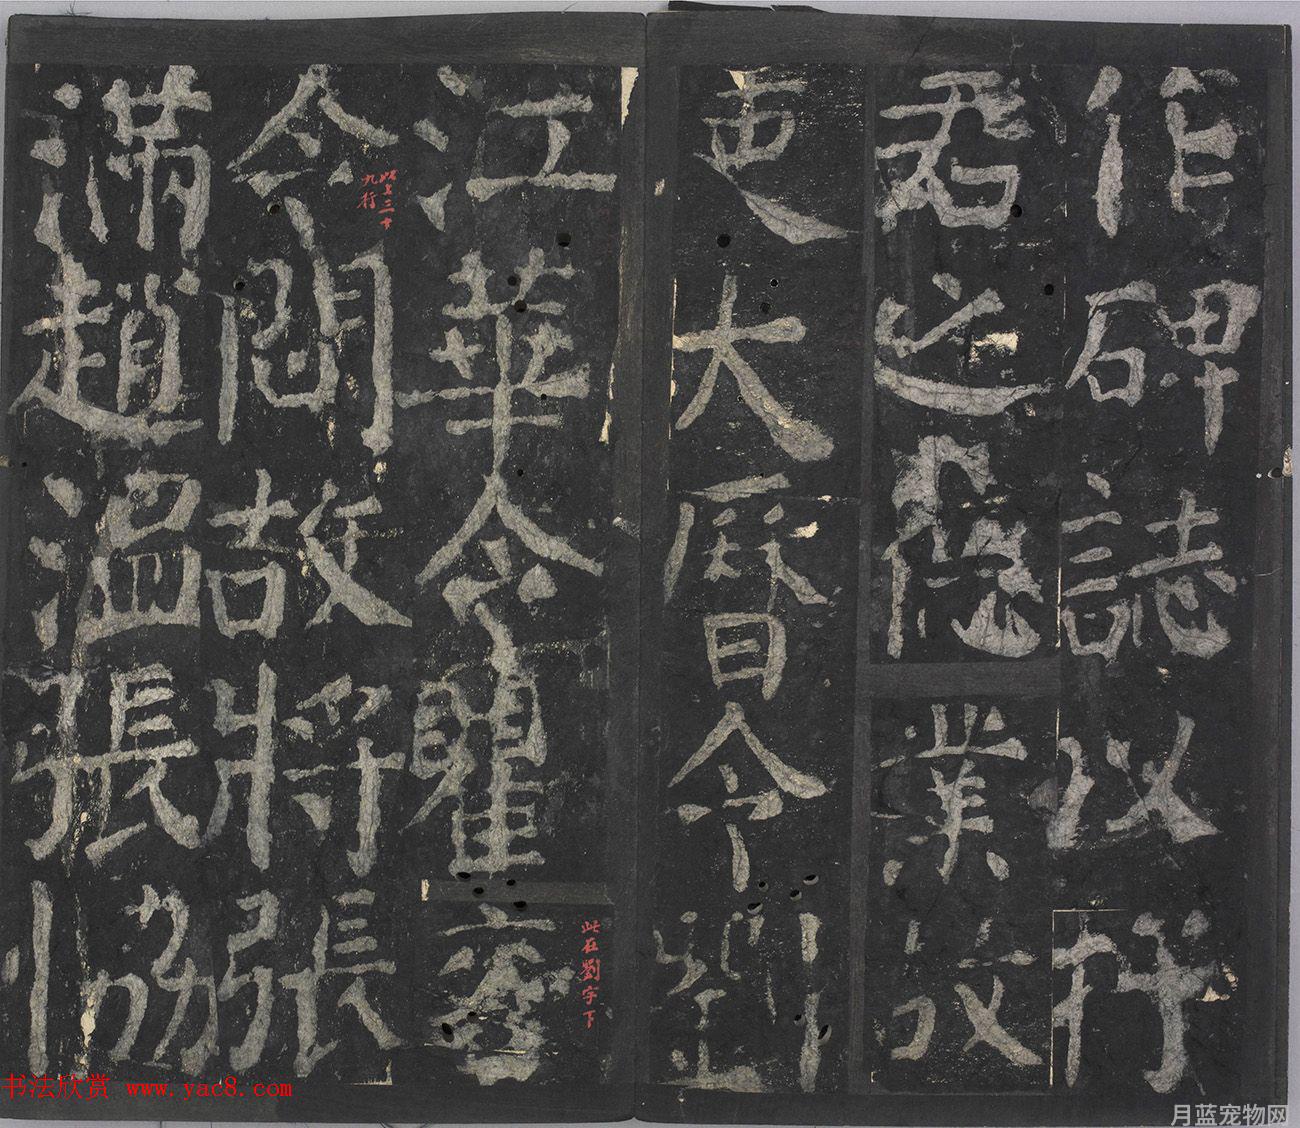 作碑誌以抒
君之德業故
吏大曆令劉
江華令瞿袞
此在劉字下
令問故將張
此上三十
九行
滿趙溫張協
书法欣赏 www.yac8.com
月蓝宠物网